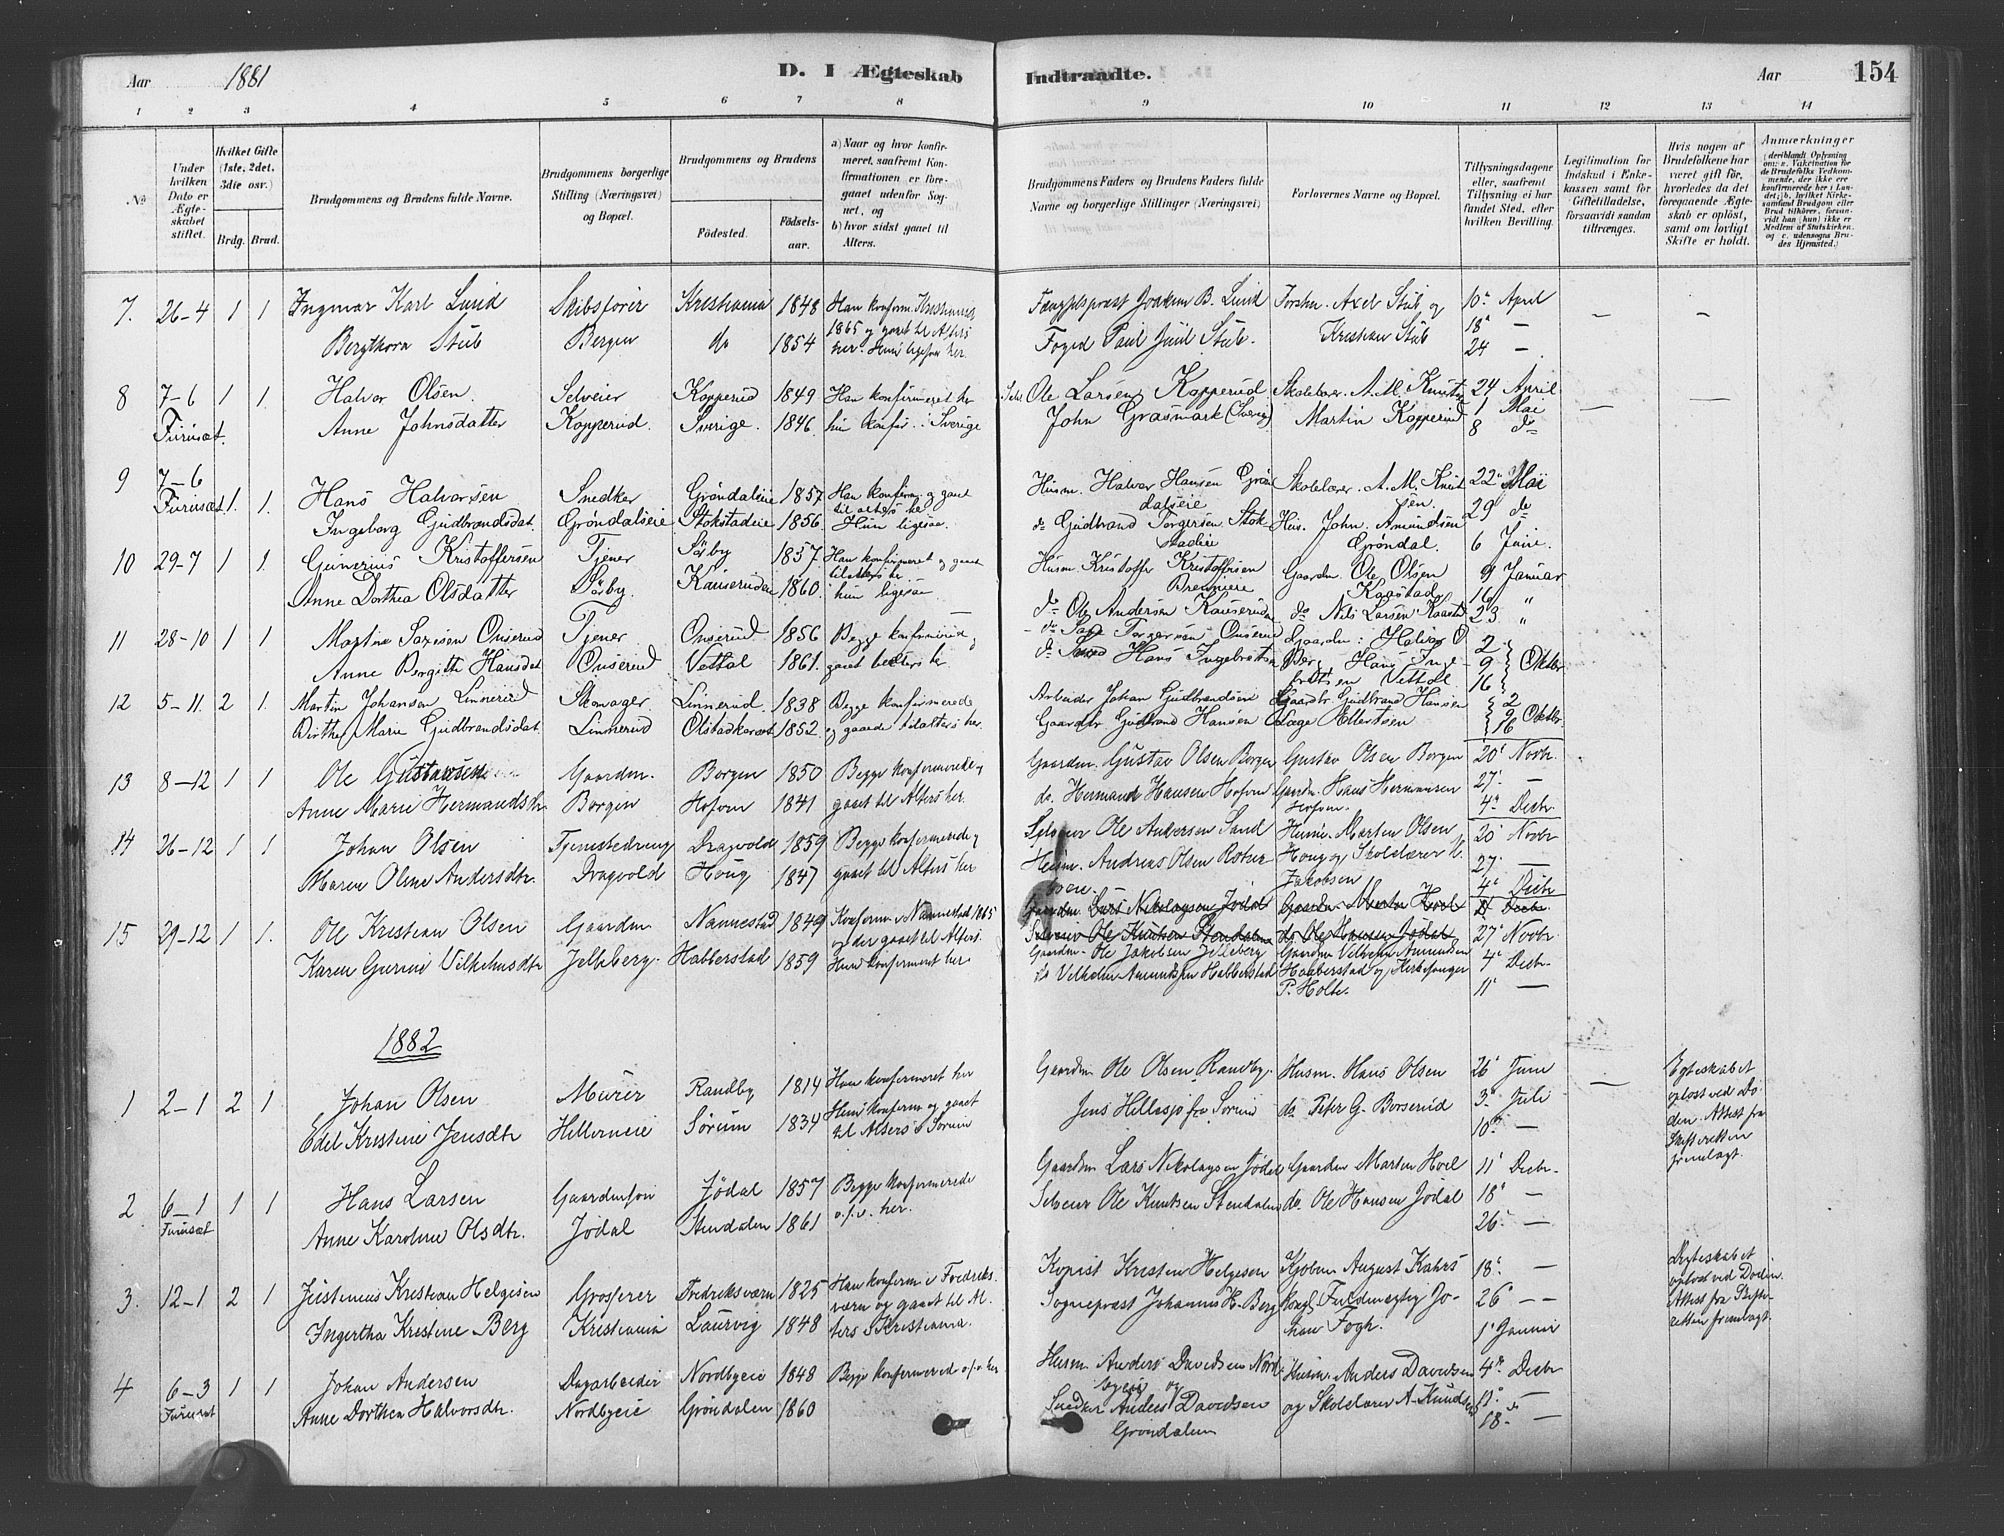 Aar 1881 D. I Ægteskab Indtraadte. Aar 154
1 2 3 4 5 6 7 8 9 10 11 12 13 14
№
Under hvilken Dato er Ægteskabet stiftet.
Hvilket Gifte (1ste, 2det, 3die osv.)
Brdg. Brud.
Brudgommens og Brudens fulde Navne.
Brudgommens borgerlige Stilling (Næringsvei) og Bopæl.
Brudgommens og Brudens
Fødested. Fødselsaar.
a) Naar og hvor konfirmeret, saafremt Konfirmationen er foregaaet udenfor Sognet, og
b) hvor sidst gaaet til Alters.
Brudgommens Faders og Brudens Faders fulde Navne og borgerlige Stillinger (Næringsvei)
Forlovernes Navne og Bopæl.
Tillysningsdagene eller, saafremt Tillysning ei har fundet Sted, efter hvilken Bevilling.
Legitimation for Indskud i Enkekassen samt for Giftetilladelse, forsaavidt saadan tiltrænges.
Hvis nogen af Brudefolkene har været gift før, hvorledes da det foregaaende Ægteskab er opløst, samt om lovligt Skifte er holdt.
Anmærkninger
(deriblandt Oplysning om: a. Vakcination for de Brudefolks Vedkommende, der ikke ere konfirmerede her i Landet; b. hvilket Kirkesamfund Brudgom eller Brud tilhører, forsaavidt han (hun) ikke er Medlem af Statskirken, og c. udensogns Brudes Hjemsted.)
7. 26-4 1 1 Ingmar Karl Lund Skibsfører Kristiania 1848 Han konfirm. Kristiania Fængselspræst Joakim B. Lund Forstm. Axel Stub og 10de April
1865 og gaaet til Alters 18 —
Bergthora Stub Bergen do 1854 her. Hun ligesaa her. Foged Paul Juul Stub. Kristian Stub 24 —
8 7-6 1 1. Halvor Olsen Selveier Kopperud 1849 Han konfirmeret her Selv. Ole Larsen Kopperud Skolelærer A. M. Knutsen 24 April
Furuset. Anne Johnsdatter Kopperud. Sverige. 1846. hun konfir. i Sverige John Grasmark (Sverig) Martin Kopperud 1 Mai
8 do
9 7-6 Furuset 1. 1. Hans Halvorsen Snedker Grøndalseie 1857 Han konfirm. og gaaet til alters her Husm. Halvor Hansen Grøndalseie Skolelærer A. M. Knutsen 22 Mai
29 do
Ingeborg Gudbrandsdat. Grøndalseie Stokstadeie 1856. Hun ligesaa. do Gudbrand Torgersen Stokstadeie Hus. John Amundsen Grøndal. 6 Juni.
10 29-7 1 1. Gunerius Kristoffersen Tjener Sørby 1857 Han konfirmeret og gaaet tilalters her Husm. Kristoffer Kristoffersen Brennieie Gaardm. Ole Olsen Kaastad 9 Januar
16 "
Anne Dorthea Olsdatter Sørby. Kauserudeie 1860. hun ligesaa do Ole Andersen Kauserud do Nils Larsen Kaastad 23 "
11 28-10 1 1 Martin Larsen Onserud Tjener Onserud 1856 Begge konfirmered og do Lars Torgersen Onserud Gaardm: Halvor O. 2
Anne Bergithe Hansdat Onserud Vettal 1861. gaaet tilalters her do Hans Ingebretsen Berg, Hans Ingebretsen Vettal 9 Oktbr
16
12 5-11. 2 1. Martin Johansen Linnerud Skomager Linnerud. 1838 Begge konfirmerede Arbeider Johan Gudbrandsen Gaardbr Gudbrand Hansen 2
9 Oktbr
Birthe Marie Gudbrandsdat. Linnerud Olstadkarset 1852. og gaaede tilalters her. Gaardbr Gudbrand Hansen Lage Ellertsen 16
13 8-12 1 1 Ole Gustavsen Gaardm. Borgen 1850 Begge konfirmerede og Gaardm. Gustav Olsen Borgen Gustav Olsen Borgen 20 Novbr.
27 —
Anne Marie Hermandsdtr Borgen Hofven 1841 gaaet til Alters her. do. Hermand Hansen Hofven Gaardm. Hans Hermansen Hofven. 4 Decbr.
14 26-12 1 1 Johan Olsen Tjenestedreng Dragvold 1859 Begge konfirmerede og Selveier Ole Andersen Sand Husm. Martin Olsen 20 Novbr
27 —
Maren Oline Andersdtr. Dragvold Houg 1847 gaaet til Alters her Husm. Andreas Olsen Houg og Skolelærer Jakobsen 4 Decbr
Gaardm. Lars Nikolaysen Jødal Gaardm. Martin Hoel 11 Decbr.
Selveier Ole Knutsen Stendalen do Ole Hansen Jødal
15 29-12 1 1. Ole Kristian Olsen Gaardm Nannestad 1849 Konfirm. i Nannestad 1865 Gaardm. Ole Jakobsen Jelleberg Gaardm Vilhelm Amundsen 27 Novbr
og der gaaet til Alters.
Karen Gurine Vilhelmsdtr Jelleberg. Habberstad 1859 Hun konfirmeret her do Vilhelm Amundsen Habberstad Habberstad og Kirkesanger P. Holte. 4 Decbr-
11 —
1882
1 2-1 2 1. Johan Olsen Murer Randby 1814 Han konfirmeret her Gaardm Ole Olsen Randby. Husm. Hans Olsen 26 Juni — Egteskabet opløst ved Døden. Attest fra Skifteretten fremlagt.
Edel Kristine Jensdtr Hillerneie Sørum 1834 Hun konfirm og gaaet til Alters i Sørum Jens Hillesjø fra Sørum do Peter G. Borserud 3 Juli
10 —
2. 6-1 1 1 Hans Larsen Gaardmsøn Jødal 1857 Begge konfirmerede o.s.v. her. Gaardm Lars Nikolaysen Jødal Gaardm Marten Hoel 11 Decbr-
Furuset Anne Karoline Olsdtr. Jødal Stendalen 1861 Selveier Ole Knutsen Stendalen do. Ole Hansen Jødal 18 —
26 —
3. 12-1 2 1 Justinius Kristian Helgesen Grosserer Fredriksværn 1825 Han konfirm i Fredriksværn og gaaet til Alters i Kristiania. Kopist Kristen Helgesen Kjøbm August Kahrs 18 — Egteskabet opløst ved Døden. Attest fra Skifteretten fremlagt.
Ingertha Kristine Berg Kristiania Laurvig 1848 Sognepræst Johannes H. Berg Fuldmægtig Johan Fogh. 26 —
1 Januar
4 6-3 1 1 Johan Andersen Dagarbeider Nordbyeie 1848 Begge konfirmered o.s.v. her Husm Anders Davidsen Nordbyeie og Husm. Anders Davidsen 4 Decbr
Furuset Anne Dorthea Halvorsdtr. Nordbyeie Grøndalen 1860 Snedker Anders Davidsen Grøndalen og Skolelærer A. Knudsen 11 —
18 —